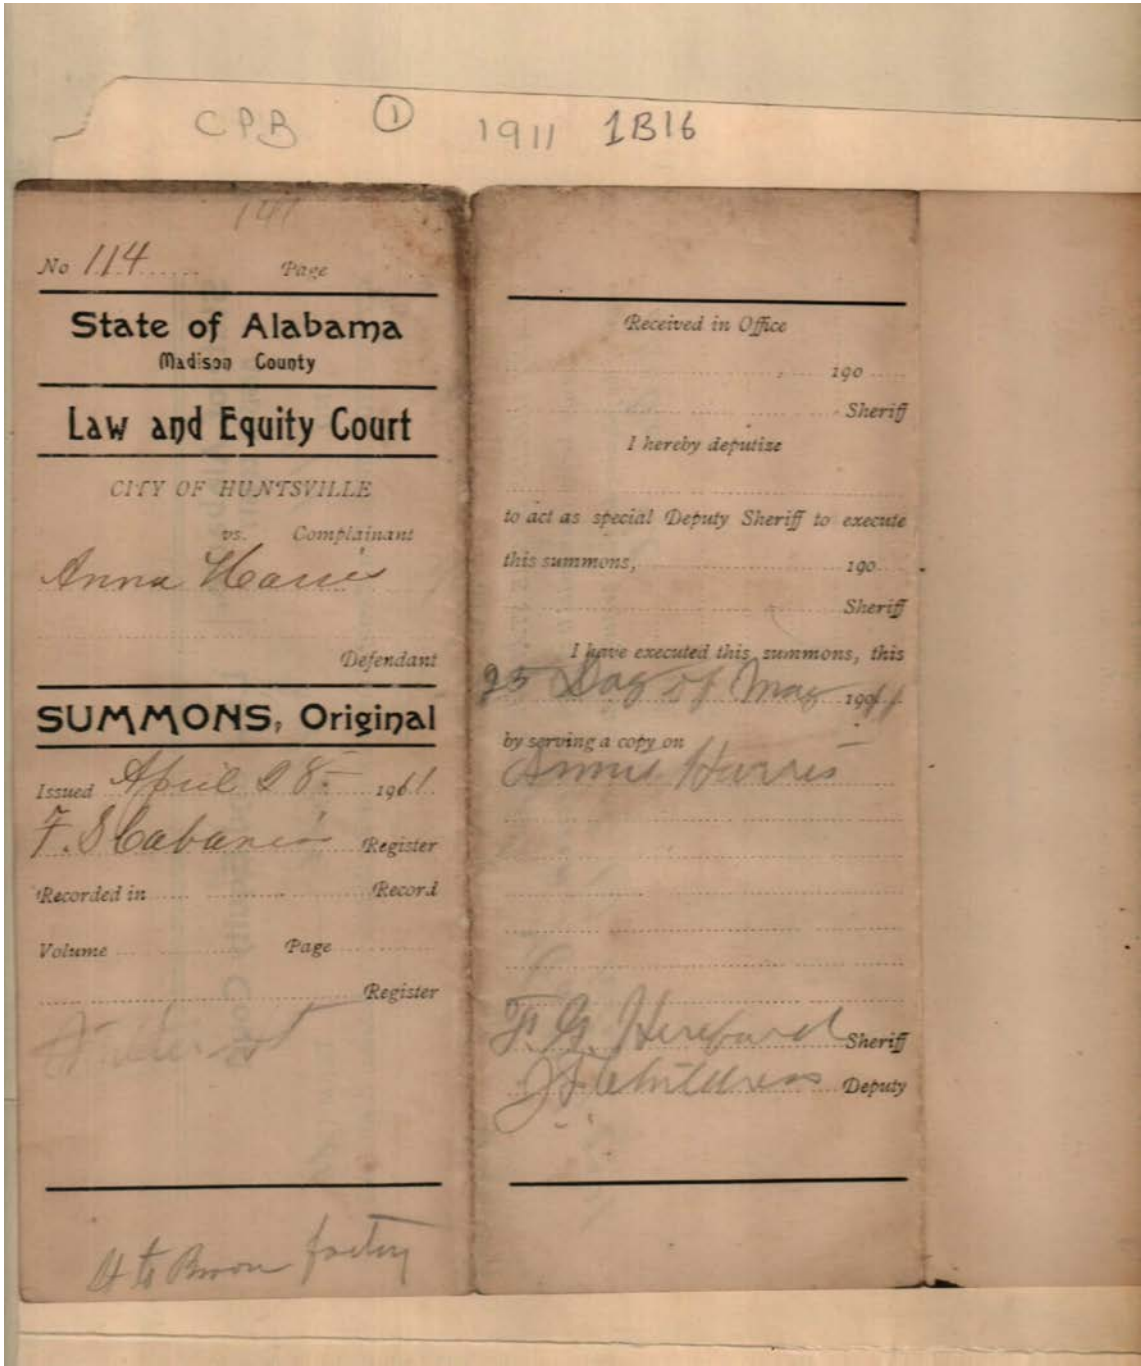 CPB ① 1911 1B16
141
No 114 Page
State of Alabama
Madison County
Law and Equity Court
CITY OF HUNTSVILLE
vs. Complainant
Anna Harris
Defendant
SUMMONS, Original
Issued April 28 1911
F. S Cabaniss Register
Recorded in Record
Volume Page
Register
Received in Office
190
Sheriff
I hereby deputize
to act as special Deputy Sheriff to execute
this summons, 190
Sheriff
I have executed this summons, this
25 Day of May 1911
by serving a copy on
Annie Harris
F. G. Hereford Sheriff
Childress Deputy